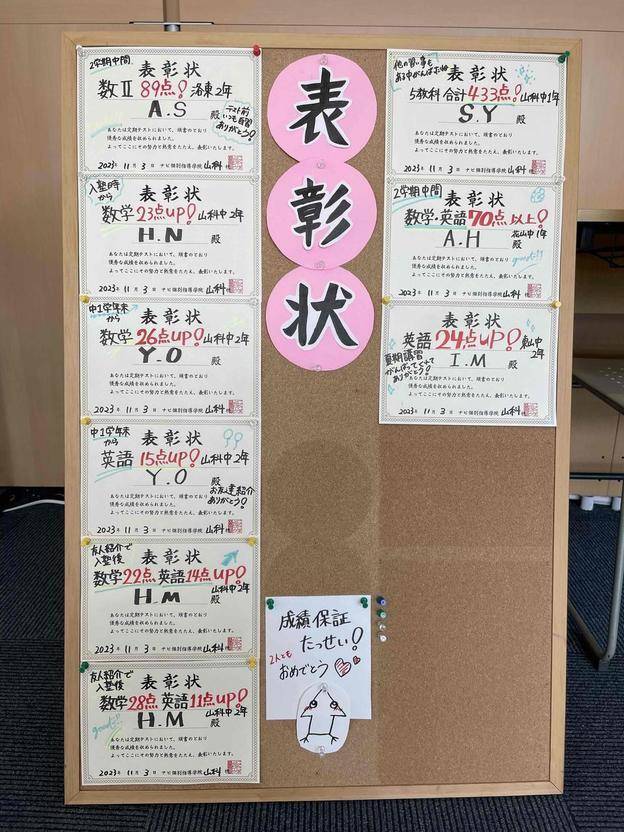 2学期中間
表彰状
数Ⅱ 89点! 洛東2年
A.S 殿
テスト前
いつも自習
ありがとう!
あなたは定期テストにおいて、頭書のとおり
優秀な成績を収められました。
よってここにその努力と熱意をたたえ、表彰いたします。
2023年 11月 3日 ナビ個別指導学院 山科校
入塾時
から
表彰状
数学23点up! 山科中2年
H.N 殿
あなたは定期テストにおいて、頭書のとおり
優秀な成績を収められました。
よってここにその努力と熱意をたたえ、表彰いたします。
2023年 11月 3日 ナビ個別指導学院 山科校
中1学年末
から
表彰状
数学26点up! 山科中2年
Y.O 殿
あなたは定期テストにおいて、頭書のとおり
優秀な成績を収められました。
よってここにその努力と熱意をたたえ、表彰いたします。
2023年 11月 3日 ナビ個別指導学院 山科校
中1学年末
から
表彰状
英語 15点up! 山科中2年
Y.O 殿
お友達紹介
ありがとう!
あなたは定期テストにおいて、頭書のとおり
優秀な成績を収められました。
よってここにその努力と熱意をたたえ、表彰いたします。
2023年 11月 3日 ナビ個別指導学院 山科校
友人紹介で
入塾後
表彰状
数学22点 英語14点up!
山科中2年
H.M 殿
あなたは定期テストにおいて、頭書のとおり
優秀な成績を収められました。
よってここにその努力と熱意をたたえ、表彰いたします。
2023年 11月 3日 ナビ個別指導学院 山科校
友人紹介で
入塾後
表彰状
数学28点 英語11点up!
山科中2年
H.M 殿
good!!
あなたは定期テストにおいて、頭書のとおり
優秀な成績を収められました。
よってここにその努力と熱意をたたえ、表彰いたします。
2023年 11月 3日 ナビ個別指導学院 山科校
表
彰
状
成績保証
たっせい!
2人とも
おめでとう
他の習い事も
ある中がんばったね
表彰状
5教科 合計433点! 山科中1年
S.Y 殿
あなたは定期テストにおいて、頭書のとおり
優秀な成績を収められました。
よってここにその努力と熱意をたたえ、表彰いたします。
2023年 11月 3日 ナビ個別指導学院 山科校
2学期中間
表彰状
数学・英語70点以上!
花山中1年
A.H 殿
good!!
あなたは定期テストにおいて、頭書のとおり
優秀な成績を収められました。
よってここにその努力と熱意をたたえ、表彰いたします。
2023年 11月 3日 ナビ個別指導学院 山科校
表彰状
英語 24点up!
2年
I.M 殿
夏期講習
がんばってくれて
ありがとう!
あなたは定期テストにおいて、頭書のとおり
優秀な成績を収められました。
よってここにその努力と熱意をたたえ、表彰いたします。
2023年 11月 3日 ナビ個別指導学院 山科校